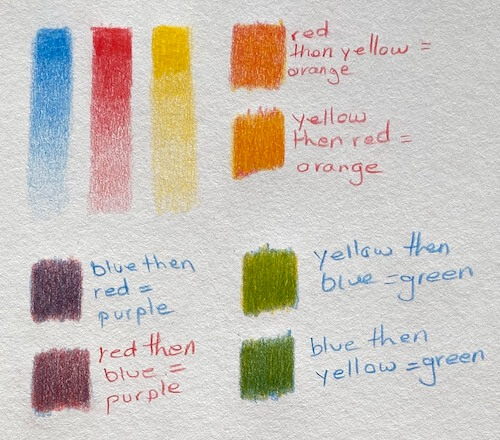 red
then yellow =
orange
yellow
then red =
orange
blue then
red =
purple
red then
blue =
purple
yellow then
blue = green
blue then
yellow = green